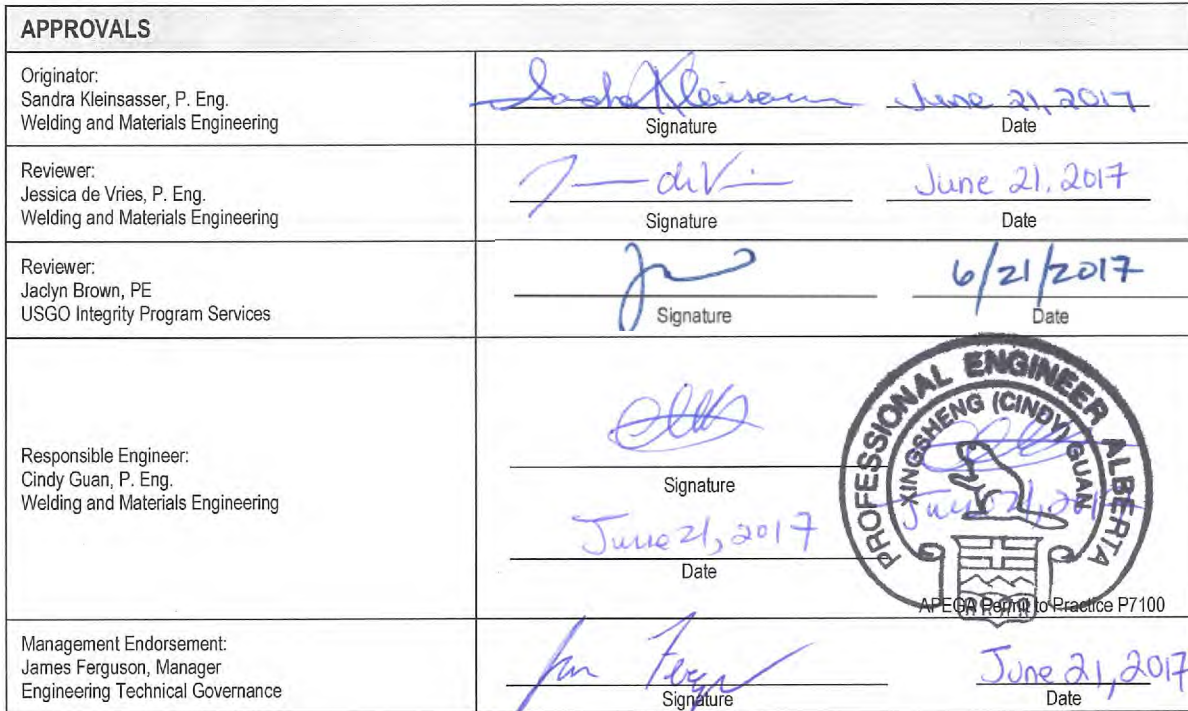 APPROVALS
Originator:
Sandra Kleinsasser, P. Eng.
Welding and Materials Engineering
June 21, 2017
Signature
Date
Reviewer:
Jessica de Vries, P. Eng.
Welding and Materials Engineering
June 21, 2017
Signature
Date
Reviewer:
Jaclyn Brown, PE
USGO Integrity Program Services
6/21/2017
Signature
Date
Responsible Engineer:
Cindy Guan, P. Eng.
Welding and Materials Engineering
Signature
June 21, 2017
Date
PROFESSIONAL ENGINEER ALBERTA
XINGSHENG (CINDY) GUAN
June 21, 2017
APEGA Permit to Practice P7100
Management Endorsement:
James Ferguson, Manager
Engineering Technical Governance
June 21, 2017
Signature
Date